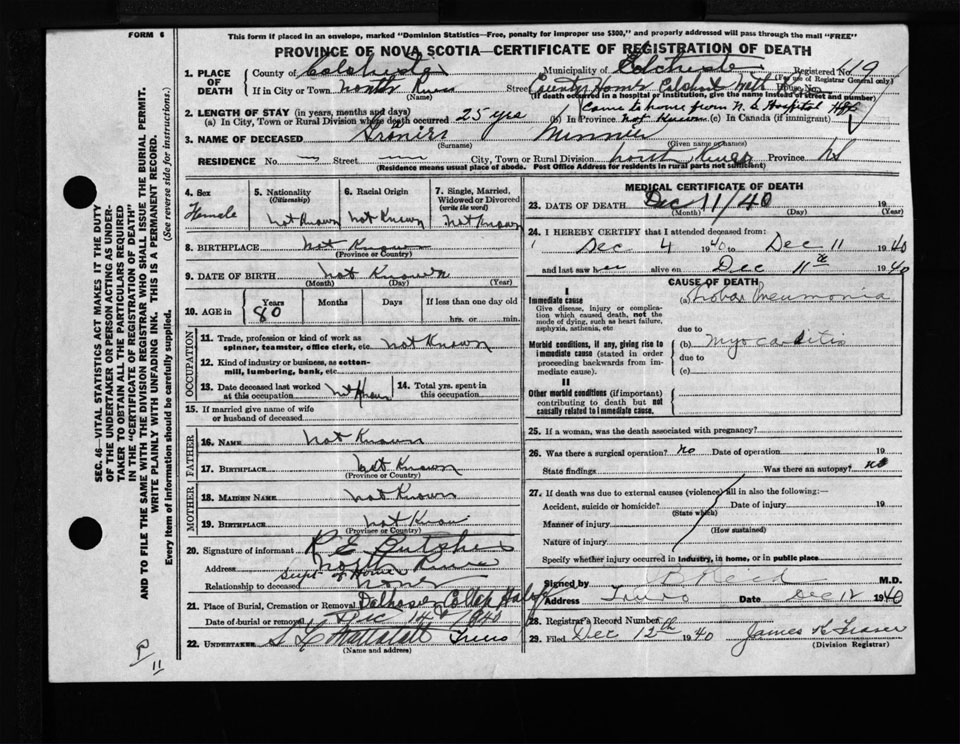 FORM 6
This form if placed in an envelope, marked "Dominion Statistics—Free, penalty for improper use $300," and properly addressed will pass through the mail "FREE"
PROVINCE OF NOVA SCOTIA—CERTIFICATE OF REGISTRATION OF DEATH
1. PLACE OF DEATH
County of Colchester Municipality of Colchester Registered No. 419
(For use of Registrar General only)
If in City or Town North River Street County Home House No.
(Name) (If death occurred in a hospital or institution, give the name instead of street and number)
Came to home from N.S. Hospital
2. LENGTH OF STAY (in years, months and days)
(a) In City, Town or Rural Division where death occurred 25 yrs (b) In Province Not Known (c) In Canada (if immigrant)
3. NAME OF DECEASED Minnie
(Surname) (Given name or names)
RESIDENCE No. Street City, Town or Rural Division North River Province NS
(Residence means usual place of abode. Post Office Address for residents in rural parts not sufficient)
4. Sex Female
5. Nationality (Citizenship) not Known
6. Racial Origin not Known
7. Single, Married, Widowed or Divorced (write the word) not Known
8. BIRTHPLACE not Known
(Province or Country)
9. DATE OF BIRTH not Known
(Month) (Day) (Year)
10. AGE in Years 80 Months Days If less than one day old hrs. or min.
OCCUPATION
11. Trade, profession or kind of work as spinner, teamster, office clerk, etc. not Known
12. Kind of industry or business, as cotton-mill, lumbering, bank, etc.
13. Date deceased last worked at this occupation not Known
14. Total yrs. spent in this occupation
15. If married give name of wife or husband of deceased
FATHER
16. NAME not Known
17. BIRTHPLACE not Known
(Province or Country)
MOTHER
18. MAIDEN NAME not Known
19. BIRTHPLACE not Know
(Province or Country)
20. Signature of informant R E Butcher
Address North River
Supt of Home
Relationship to deceased none
21. Place of Burial, Cremation or Removal Dalhousie College Halifax
Date of burial or removal Dec 14th 1940
22. UNDERTAKER Truro
(Name and address)
MEDICAL CERTIFICATE OF DEATH
23. DATE OF DEATH Dec 11/40 19
(Month) (Day) (Year)
24. I HEREBY CERTIFY that I attended deceased from:
Dec 4 1940 to Dec 11 1940
and last saw her alive on Dec 11th 1940
CAUSE OF DEATH
I
Immediate cause
Give disease, injury or complication which caused death, not the mode of dying, such as heart failure, asphyxia, asthenia, etc
(a) Lobar Pneumonia
due to
Morbid conditions, if any, giving rise to immediate cause (stated in order proceeding backwards from immediate cause).
(b) Myocarditis
due to
(c)
II
Other morbid conditions (if important) contributing to death but not causally related to immediate cause.
25. If a woman, was the death associated with pregnancy?
26. Was there a surgical operation? no Date of operation 19
State findings Was there an autopsy? no
27. If death was due to external causes (violence) fill in also the following:—
Accident, suicide or homicide? Date of injury 19
(State which)
Manner of injury
(How sustained)
Nature of injury
Specify whether injury occurred in industry, in home, or in public place
Signed by Reid M.D.
Address Truro Date Dec 12 1940
28. Registrar's Record Number
29. Filed Dec 12th 1940 James H Fraser
(Division Registrar)
SEC. 46—VITAL STATISTICS ACT MAKES IT THE DUTY
OF THE UNDERTAKER OR PERSON ACTING AS UNDER-
TAKER TO OBTAIN ALL THE PARTICULARS REQUIRED
IN THE "CERTIFICATE OF REGISTRATION OF DEATH"
AND TO FILE THE SAME WITH THE DIVISION REGISTRAR WHO SHALL ISSUE THE BURIAL PERMIT.
WRITE PLAINLY WITH UNFADING INK. THIS IS A PERMANENT RECORD.
Every item of information should be carefully supplied. (See reverse side for instructions.)
P
11